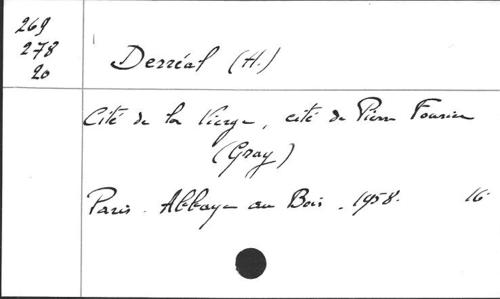 269
278
20
Derréal (H.)
Cité de la Vierge, cité de Pierre Fourier
(Gray)
Paris. Abbaye au Bois. 1958. 16